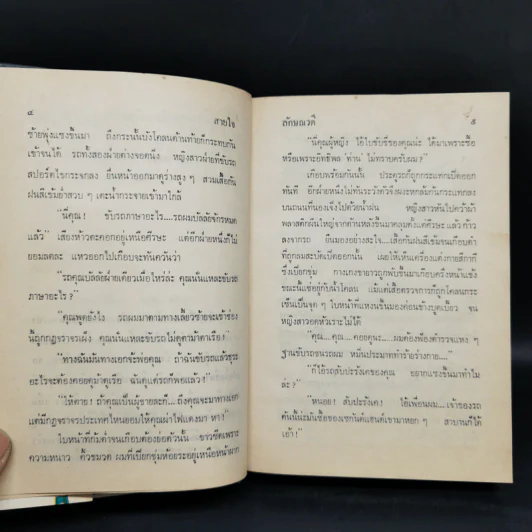 ๔ สายใจ
ซ้ายพุ่งแซงขึ้นมา ถึงกระนั้นบังโคลนด้านท้ายก็กระทบกัน
เข้าจนได้ รถทั้งสองฝ่ายต่างจอดนิ่ง หญิงสาวฝ่ายที่ขับรถ
สปอร์ตไขกระจกลง ยื่นหน้าออกมาดูร่างสูง ๆ สวมเสื้อกัน
ฝนสีเข้มย่ำสวบ ๆ เตะน้ำกระจายเข้ามาใกล้
“นี่คุณ! ขับรถภาษาอะไร....รถผมบัลลัยจักรหมด
แล้ว” เสียงห้าวตะคอกอยู่เหนือศีรษะ แต่อีกฝ่ายหนึ่งก็ไม่
ยอมลดละ แหวออกไปเกือบจะทันควันว่า
“รถคุณบัลลัยฝ่ายเดียวเมื่อไหร่ล่ะ คุณนั่นแหละขับรถ
ภาษาอะไร?”
“คุณพูดยังไง รถผมมาตามทางเลี้ยวซ้ายจะเข้าซอย
นี้ถูกกฎจราจรเผง คุณนั่นแหละขับรถไม่ดูตาม้าตาเรือ”
“ทางฉันมันทางเอกจ้ะพ่อคุณ ถ้าฉันขับรถแล้วธุระ
อะไรจะต้องคอยดูม้าดูเรือ ฉันดูแต่รถก็พอแล้ว!”
“ให้ตาย! ถ้าคุณเป็นผู้ชายละก็....ถึงจะลงมาจากทางเอก
แต่มีกฎจราจรประเทศไหนยอมให้คุณฝ่าไฟแดงมา หา!”
ใบหน้าที่ก้มต่ำจนเกือบต้องย่อตัวนั้น ขาวซีดเพราะ
ความหนาว คิ้วขมวด ผมที่เปียกชุ่มห้อยระอยู่เหนือหน้าผาก
ลักษณวดี ๕
“นี่คุณผู้หญิง ไอ้ใบขับขี่ของคุณน่ะ ได้มาเพราะซื้อ
หรือเพราะอิทธิพล ท่าน ไม่ทราบครับผม?”
เกือบพร้อมกันนั้น ประตูรถก็ถูกกระแทกเปิดออก
ทันที อีกฝ่ายหนึ่งไม่ทันระวังตัวจึงผงะหกล้มก้นกระแทกลง
บนถนนที่นองเจิ่งไปด้วยน้ำฝน หญิงสาวหันไปคว้าผ้า
พลาสติกผืนใหญ่จากด้านหลังขึ้นมาคลุมตั้งแต่ศีรษะ แล้วก้าว
ลงจากรถ ยืนมองอย่างสะใจ...เสื้อกันฝนสีเข้มจนเกือบดำ
ที่ถูกลมสะบัดเปิดออกนั้น เผยให้เห็นเครื่องแต่งกายสีกากี
ซึ่งเปียกชุ่ม กางเกงขายาวถูกพับขึ้นมาเกือบครึ่งหน้าแข้ง
ขณะนั้นแช่อยู่กับน้ำโคลน แม้แต่เสื้อตรวจการก็ถูกโคลนกระ
เซ็นเป็นจุด ๆ ใบหน้าที่แหงนขึ้นมองค่อนข้างบูดเบี้ยว จน
หญิงสาวอดหัวเราะไม่ได้
“คุณ...คุณ....คอยดูนะ....ผมต้องฟ้องตำรวจแหง ๆ
ฐานขับรถชนรถผม หมิ่นประมาททำร้ายร่างกาย....”
“ก็ไอ้รถสับปะรังเคของคุณ อยากแซงขึ้นมาทำไม
ล่ะ?”
“หนอย! สับปะรังเค! ไอ้เพื่อนผม....เจ้าของรถ
คันนั้นน่ะมันซื้อของเซกันด์แฮนด์เขามาหยก ๆ สาบานก็ได้
เอ้า!”